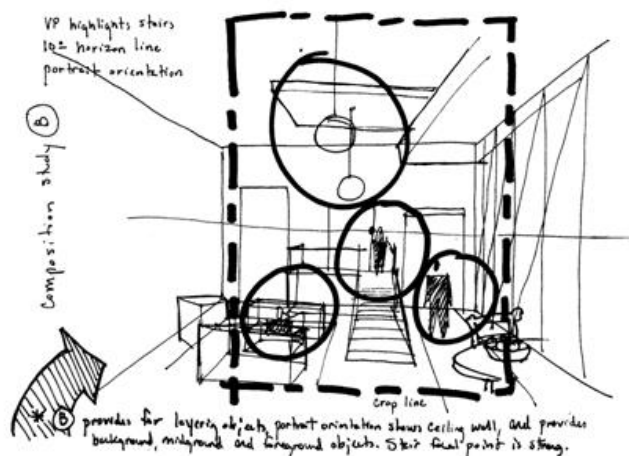 VP highlights stairs
10± horizon line
portrait orientation
Composition study B
crop line
* B provides for layering objects, portrait orientation shows ceiling well, and provides
background, midground and foreground objects. Stair focal point is strong.